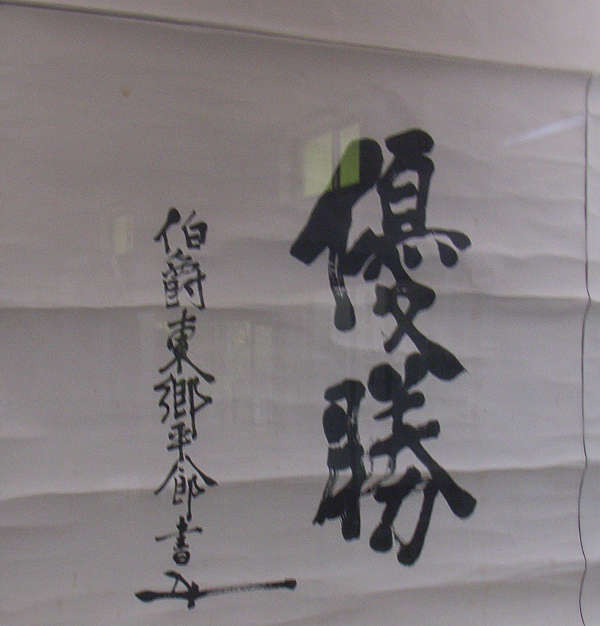 優勝
伯爵東郷平八郎書